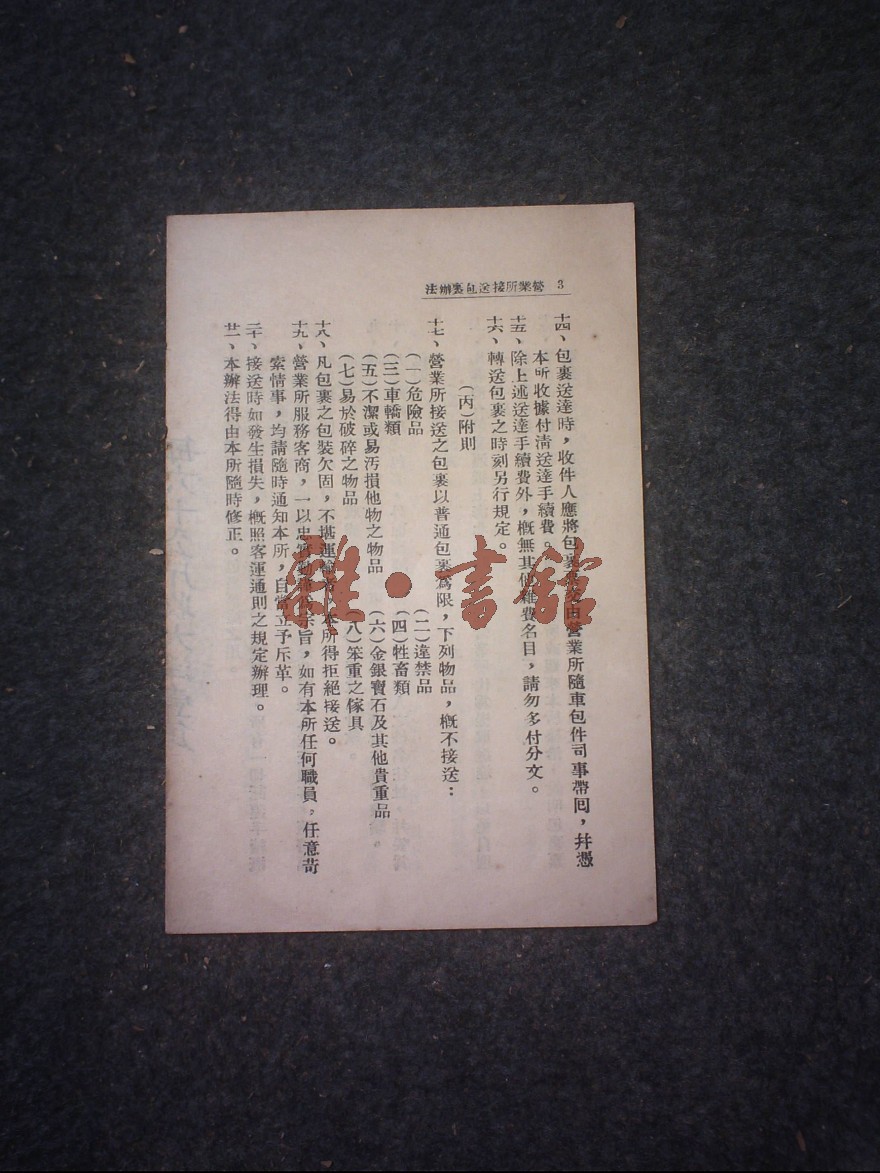 3　營業所接送包裹辦法
十四、包裹送達時，收件人應將包裹 由營業所隨車包件司事帶回，幷憑
本所收據付淸送達手續費。
十五、除上述送達手續費外，槪無其他雜費名目，請勿多付分文。
十六、轉送包裹之時刻另行規定。
（丙）附則
十七、營業所接送之包裹以普通包裹爲限，下列物品，槪不接送：
（一）危險品　（二）違禁品
（三）車轎類　（四）牲畜類
（五）不潔或易汚損他物之物品　（六）金銀寶石及其他貴重品。
（七）易於破碎之物品　（八）笨重之傢具
十八、凡包裹之包裝欠固，不堪運輸者，本所得拒絕接送。
十九、營業所服務客商，一以忠實 宗旨，如有本所任何職員，任意苛
索情事，均請隨時通知本所，自當立予斥革。
二十、接送時如發生損失，槪照客運通則之規定辦理。
廿一、本辦法得由本所隨時修正。
雜·書館